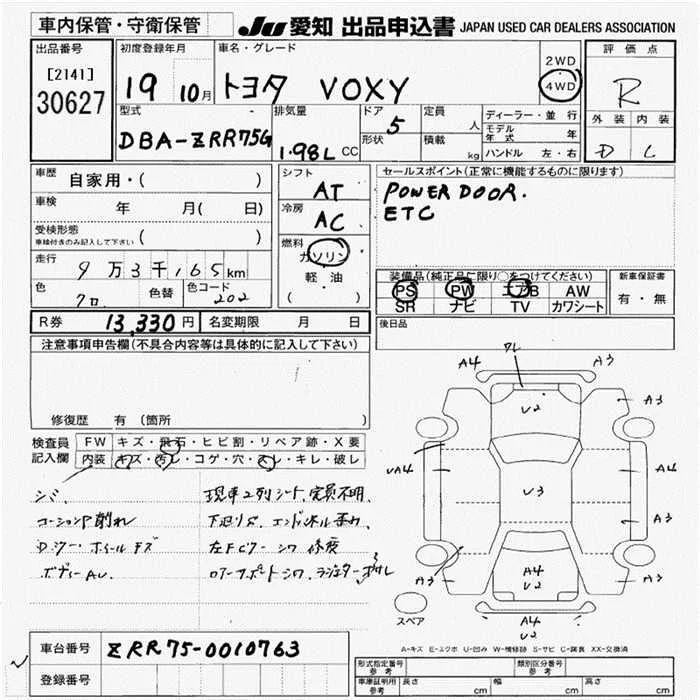 車内保管・守衛保管
JU 愛知 出品申込書 JAPAN USED CAR DEALERS ASSOCIATION
出品番号
[2141]
30627
初度登録年月
19 10月
車名・グレード
トヨタ VOXY
2WD
4WD
評価点
R
外装 内装
D L
型式
DBA-ZRR75G
排気量
1.98L CC
ドア
5
形状
定員
人
積載
kg
ディーラー・並行
モデル年式 年
ハンドル 左・右
車歴 自家用・( )
車検 年 月( 日)
受検形態
車検付きのみ記入して下さい ( )
走行 9万3千165km
色 クロ 色替 色コード 202
シフト
AT
冷房
AC
燃料
ガソリン
軽・油
( )
セールスポイント(正常に機能するものに限ります)
POWER DOOR.
ETC
装備品(純正品に限り○をつけてください)
PS PW エアB AW
SR ナビ TV カワシート
新車保証書
有・無
R券 13,330円 名変期限 月 日
後日品
注意事項申告欄(不具合内容等は具体的に記入して下さい)
修復歴 有(箇所 )
検査員記入欄
FW キズ・飛石・ヒビ割・リペア跡・X要
内装 キズ・汚レ・コゲ・穴・スレ・キレ・破レ
シミ 現車2列シート、定員不明、
コーションP削れ
ボディー
A4 A3
U2
A3
UA4 A4
U3
A3
A3 A4 U2 A3
スペア
A4
U2
A-キズ E-エクボ U-凹み W-補修跡 S-サビ C-腐食 XX-交換済
車台番号 ZRR75-0010763
登録番号
型式指定番号 参考
類別区分番号 参考
車庫証明用 参考 長さ cm 幅 cm 高さ cm